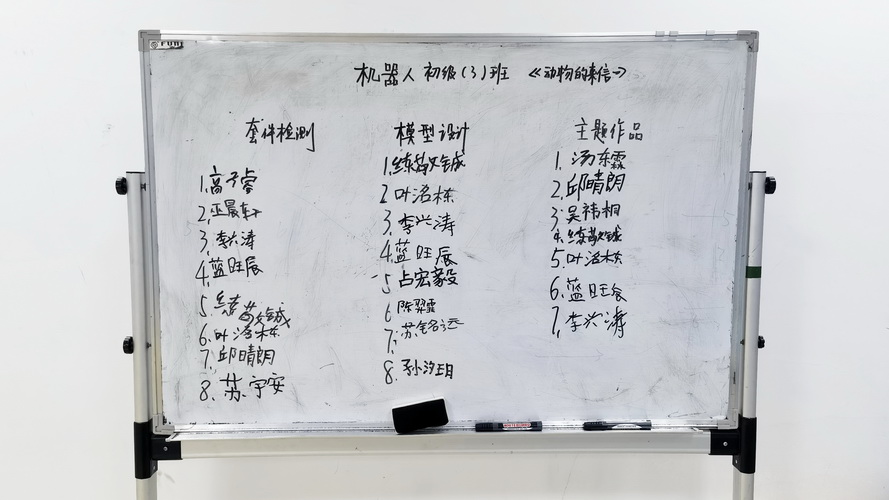 机器人 初级(3)班 《动物的来信一》
套件检测
1.高子睿
2.巫晨轩
3.李兴涛
4.蓝旺辰
5.练
6.叶洺栋
7.邱晴朗
8.苏宇安
模型设计
1.练
2.叶洺栋
3.李兴涛
4.蓝旺辰
5.占宏毅
6.陈羿霏
7.苏铭远
8.孙汐玥
主题作品
1.汤东霖
2.邱晴朗
3.吴祎桐
4.练
5.叶洺栋
6.蓝旺辰
7.李兴涛